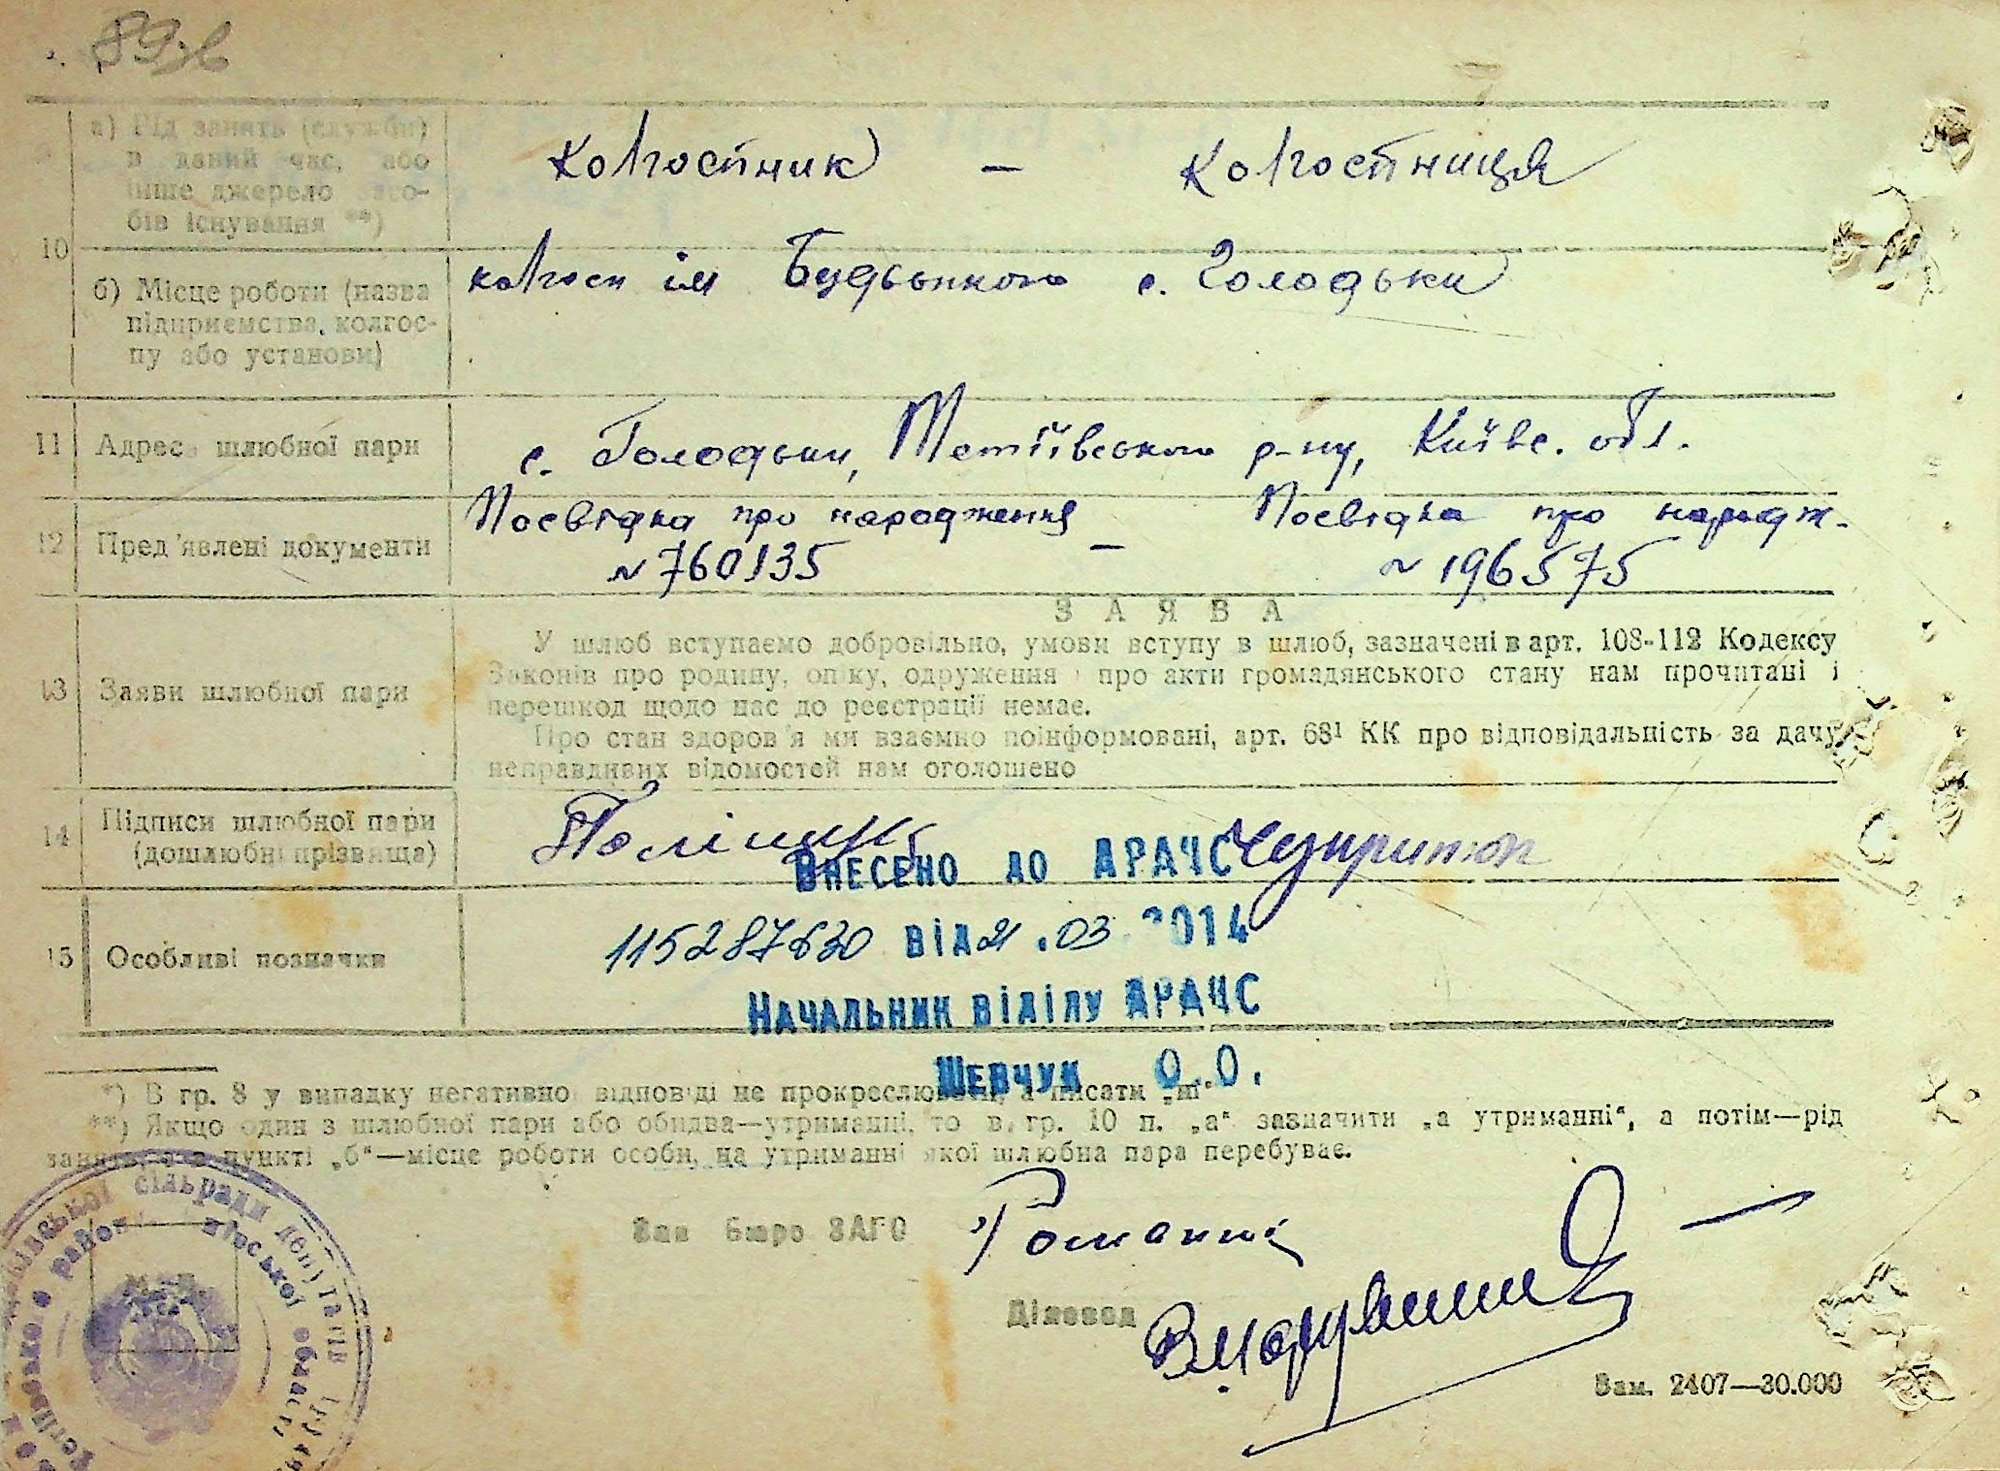 89зв
а) Рід занять (служби)
в даний час, або
інше джерело засо-
бів існування **)
колгоспник – колгоспниця
10
б) Місце роботи (назва
підприємства, колгос-
пу або установи)
колгосп ім Будьонного с. Голодьки
11 Адреса шлюбної пари
с. Голодьки, Тетіївського р-ну, Київс. обл.
12 Пред'явлені документи
Посвідка про народження – Посвідка про народж.
№ 760135 № 196575
13 Заяви шлюбної пари
ЗАЯВА
У шлюб вступаємо добровільно, умови вступу в шлюб, зазначені в арт. 108-112 Кодексу
Законів про родину, опіку, одруження і про акти громадянського стану нам прочитані і
перешкод щодо нас до реєстрації немає.
Про стан здоров'я ми взаємно поінформовані, арт. 68¹ КК про відповідальність за дачу
неправдивих відомостей нам оголошено
14 Підписи шлюбної пари
(дошлюбні прізвища)
Поліщук
Внесено до АРАЧС
15 Особливі позначки
115287630 від 21.03.2014
Начальник відділу АРАЧС
Шевчук О.О.
*) В гр. 8 у випадку негативної відповіді не прокреслювати, а писати „ні“
**) Якщо один з шлюбної пари або обидва—утриманці, то в гр. 10 п. „а“ зазначити „а утриманні“, а потім—рід
занять, а в пункті „б“—місце роботи особи, на утриманні якої шлюбна пара перебуває.
Зав бюро ЗАГС
Діловод
Зам. 2407—30.000
сільради депутатів
район
області